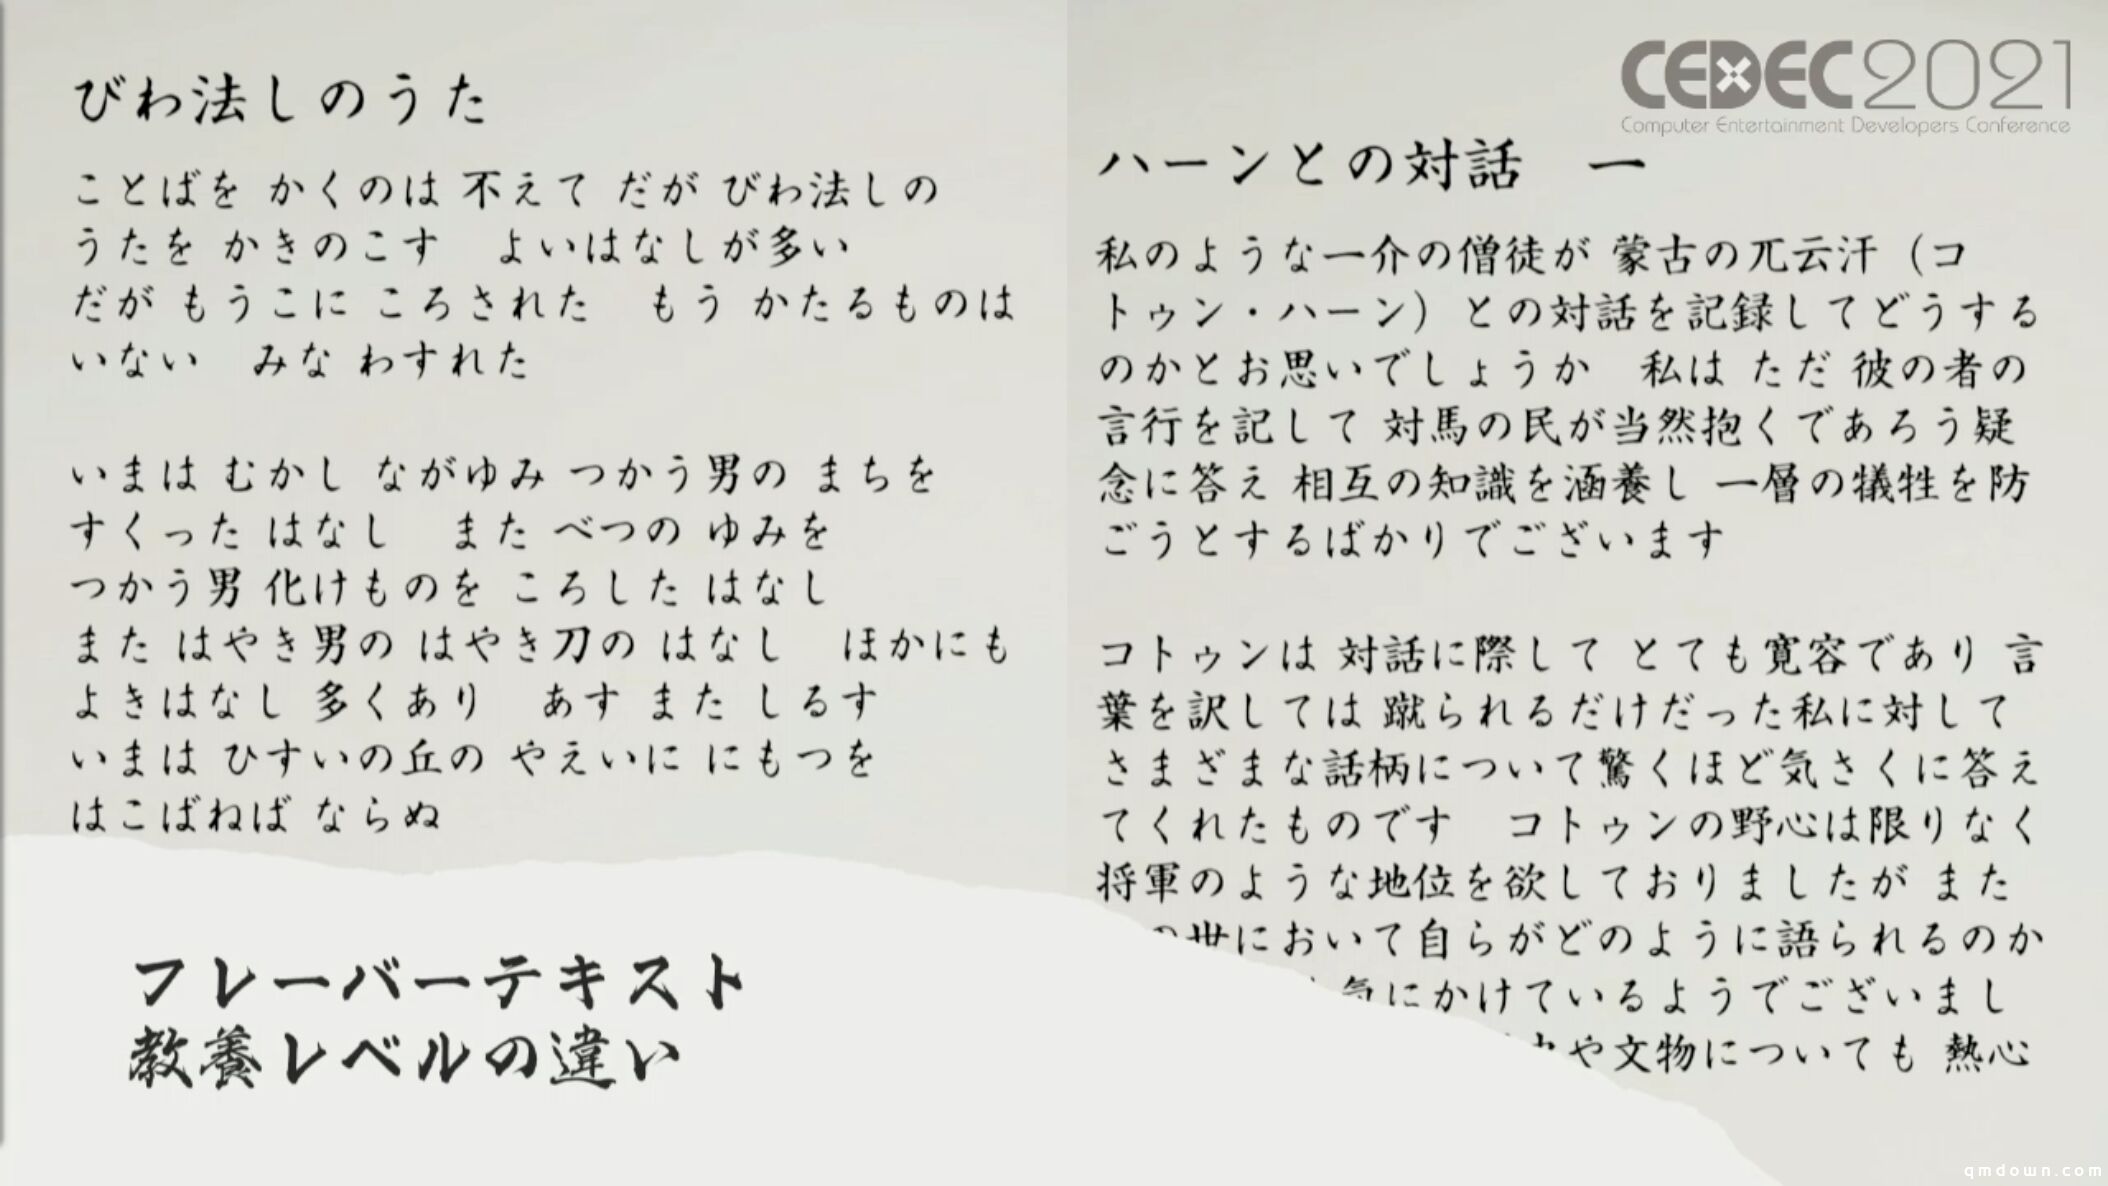 びわ法しのうた
ことばを かくのは 不えて だが びわ法しの
うたを かきのこす　よいはなしが多い
だが もうこに ころされた　もう かたるものは
いない　みな わすれた
いまは むかし ながゆみ つかう男の まちを
すくった はなし　また べつの ゆみを
つかう男 化けものを ころした はなし
また はやき男の はやき刀の はなし　ほかにも
よきはなし 多くあり　あす また しるす
いまは ひすいの丘の やえいに にもつを
はこばねば ならぬ
フレーバーテキスト
教養レベルの違い
CEDEC2021
Computer Entertainment Developers Conference
ハーンとの対話　一
私のような一介の僧徒が 蒙古の兀云汗（コ
トゥン・ハーン）との対話を記録してどうする
のかとお思いでしょうか　私は ただ 彼の者の
言行を記して 対馬の民が当然抱くであろう疑
念に答え 相互の知識を涵養し 一層の犠牲を防
ごうとするばかりでございます
コトゥンは 対話に際して とても寛容であり 言
葉を訳しては 蹴られるだけだった私に対して
さまざまな話柄について驚くほど気さくに答え
てくれたものです　コトゥンの野心は限りなく
将軍のような地位を欲しておりましたが また
の世において自らがどのように語られるのか
気にかけているようでございまし
や文物についても 熱心
qmdown.com